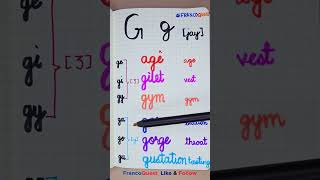 @FRANCOQUEST
G g [jay]
ge agé age
gi [3] gilet vest
gy gym gym
ga
go gorge throat
gu gustation tasting
[3] vest
gym
FrancoQuest Like & Follow